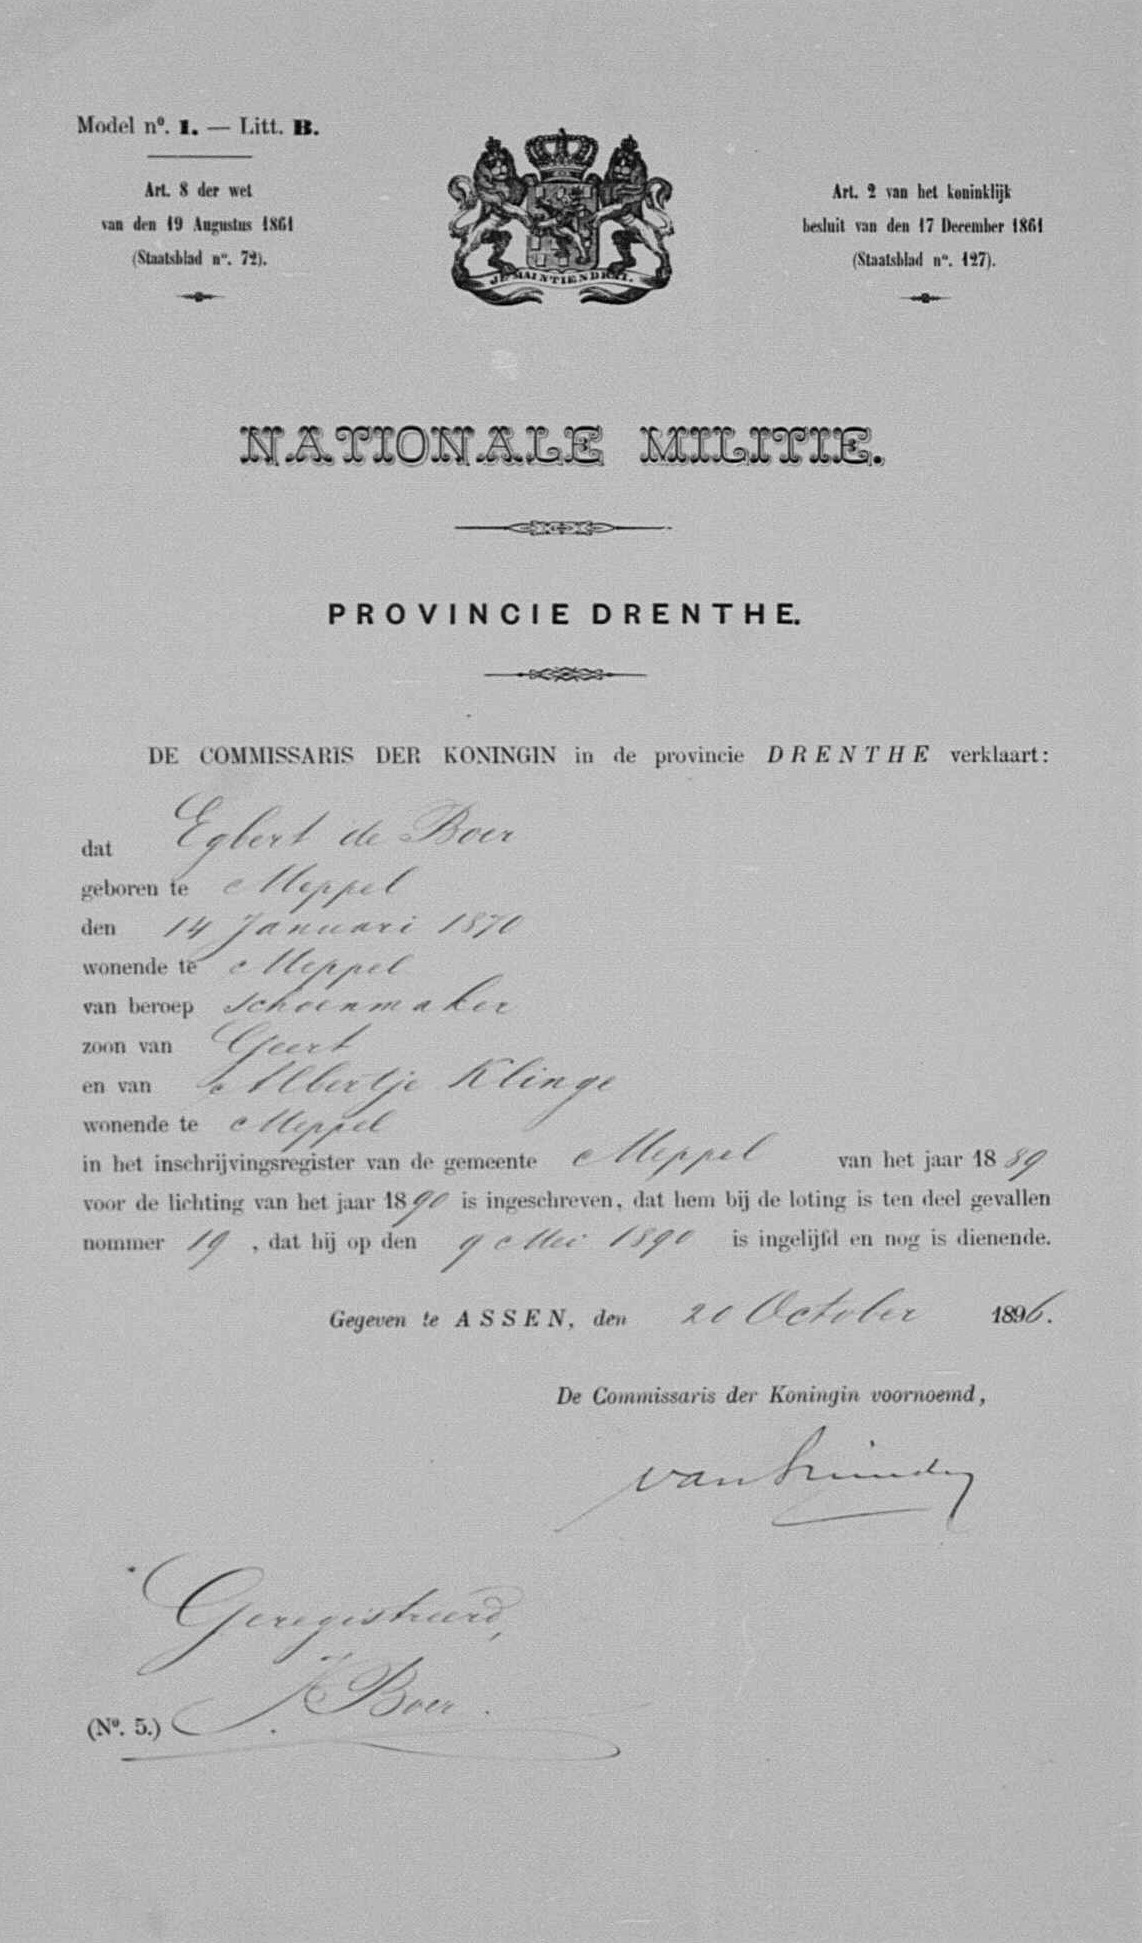 Model nº. 1. — Litt. B.
Art. 8 der wet
van den 19 Augustus 1861
(Staatsblad nº. 72).
JE MAINTIENDRAI.
Art. 2 van het koninklijk
besluit van den 17 December 1861
(Staatsblad nº. 127).
NATIONALE MILITIE.
PROVINCIE DRENTHE.
DE COMMISSARIS DER KONINGIN in de provincie DRENTHE verklaart:
dat Egbert de Boer
geboren te Meppel
den 14 Januari 1870
wonende te Meppel
van beroep schoenmaker
zoon van Geert
en van Albertje Klinge
wonende te Meppel
in het inschrijvingsregister van de gemeente Meppel van het jaar 1889
voor de lichting van het jaar 1890 is ingeschreven, dat hem bij de loting is ten deel gevallen
nommer 19, dat hij op den 9 Mei 1890 is ingelijfd en nog is dienende.
Gegeven te ASSEN, den 20 October 1896.
De Commissaris der Koningin voornoemd,
van
Geregistreerd,
Boer.
(Nº. 5.)